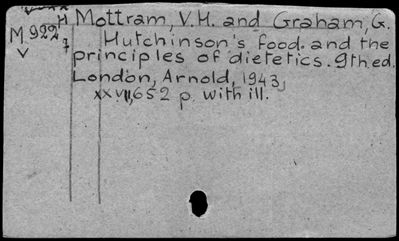 H Mottram, V.H. and Graham, G.
M 922 Hutchinson's food and the
7
V principles of dietetics. 9th ed.
London, Arnold, 1943,
xxvii, 652 p. with ill.